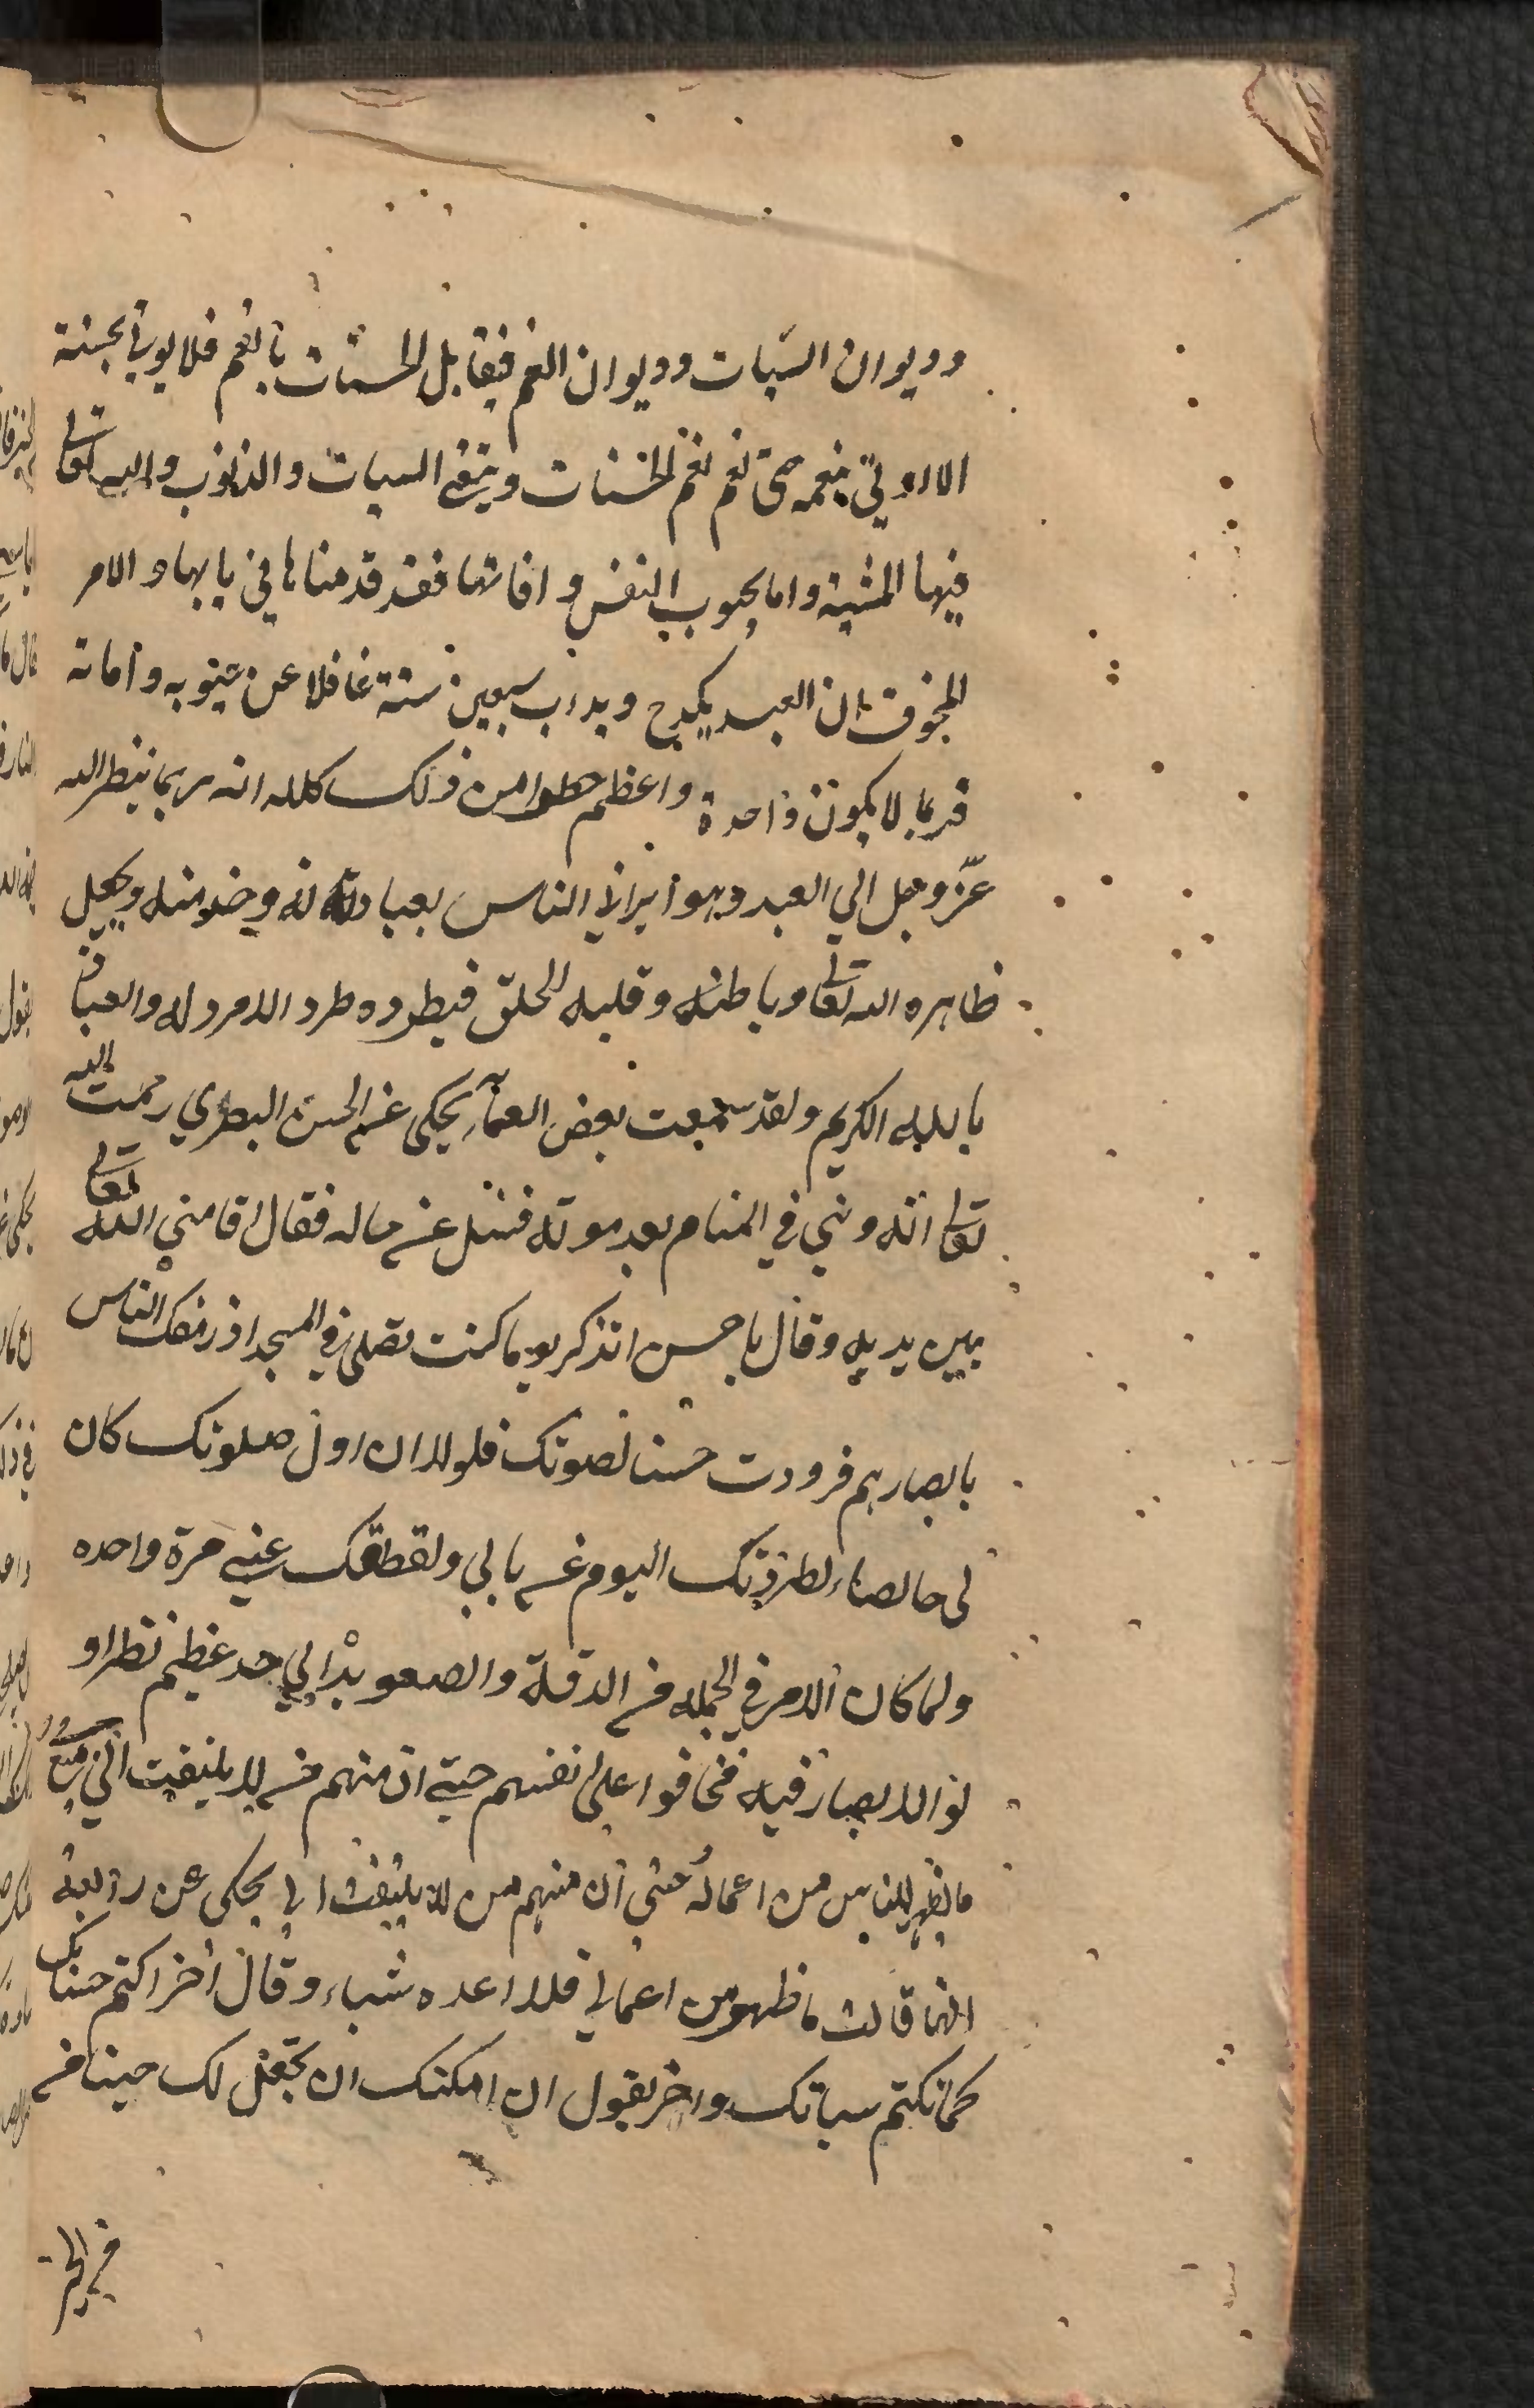 وديوان السيات وديوان النعم فيقابل الحسنات بالنعم فلا يوتي بحسنة
الا اوتي بنعمه حتي تعم نعم الحسنات ويبقي السيات والذنوب والله تعالي
فيها المشية واما عيوب النفس وافاتها فقد قدمناها في بابها والامر
المخوف ان العبد يكدح ويداب سبعين سنة غافلا عن عيوبه وافاته
فربما لا يكون واحدة واعظم خطرا من ذلك كله انه ربما ينظر الله
عز وجل الي العبد وهو ايرائي الناس بعبادته له وخدمته ويجعل
ظاهره الله تعالي وباطنه وقلبه للخلق فيطرده طرد الا مرد له والعياذ
بالله الكريم ولقد سمعت بعض العلماء يحكي عن الحسن البصري رحمت الله
تعالي انه وئي في المنام بعد موته فسئل عن حاله فقال اقامني الله تعالي
بين يديه وقال يا حسن اتذكر يوما كنت تصلي في المسجد اذ رمقك الناس
بابصارهم فزودت حسنا لصوتك فلولا ان اول صلوتك كان
لي خالصا لطردتك اليوم عن بابي ولقطعتك عني مرة واحده
ولما كان الامر في الجمله من الدقة والصعوبة الي حد عظيم نظر او
لو الابصار فيه فخافوا علي نفسهم حتي ان منهم من لا يلتفت الي جميع
ما يظهر للناس من اعماله حتي ان منهم من لا يلتفت الي يحكي عن رابعة
انها قالت ما ظهر من اعمالي فلا اعده شياء وقال اخر اكتم حسناتك
كما تكتم سياتك واخر يقول ان امكنك ان تجعل لك حينا من
من الخير